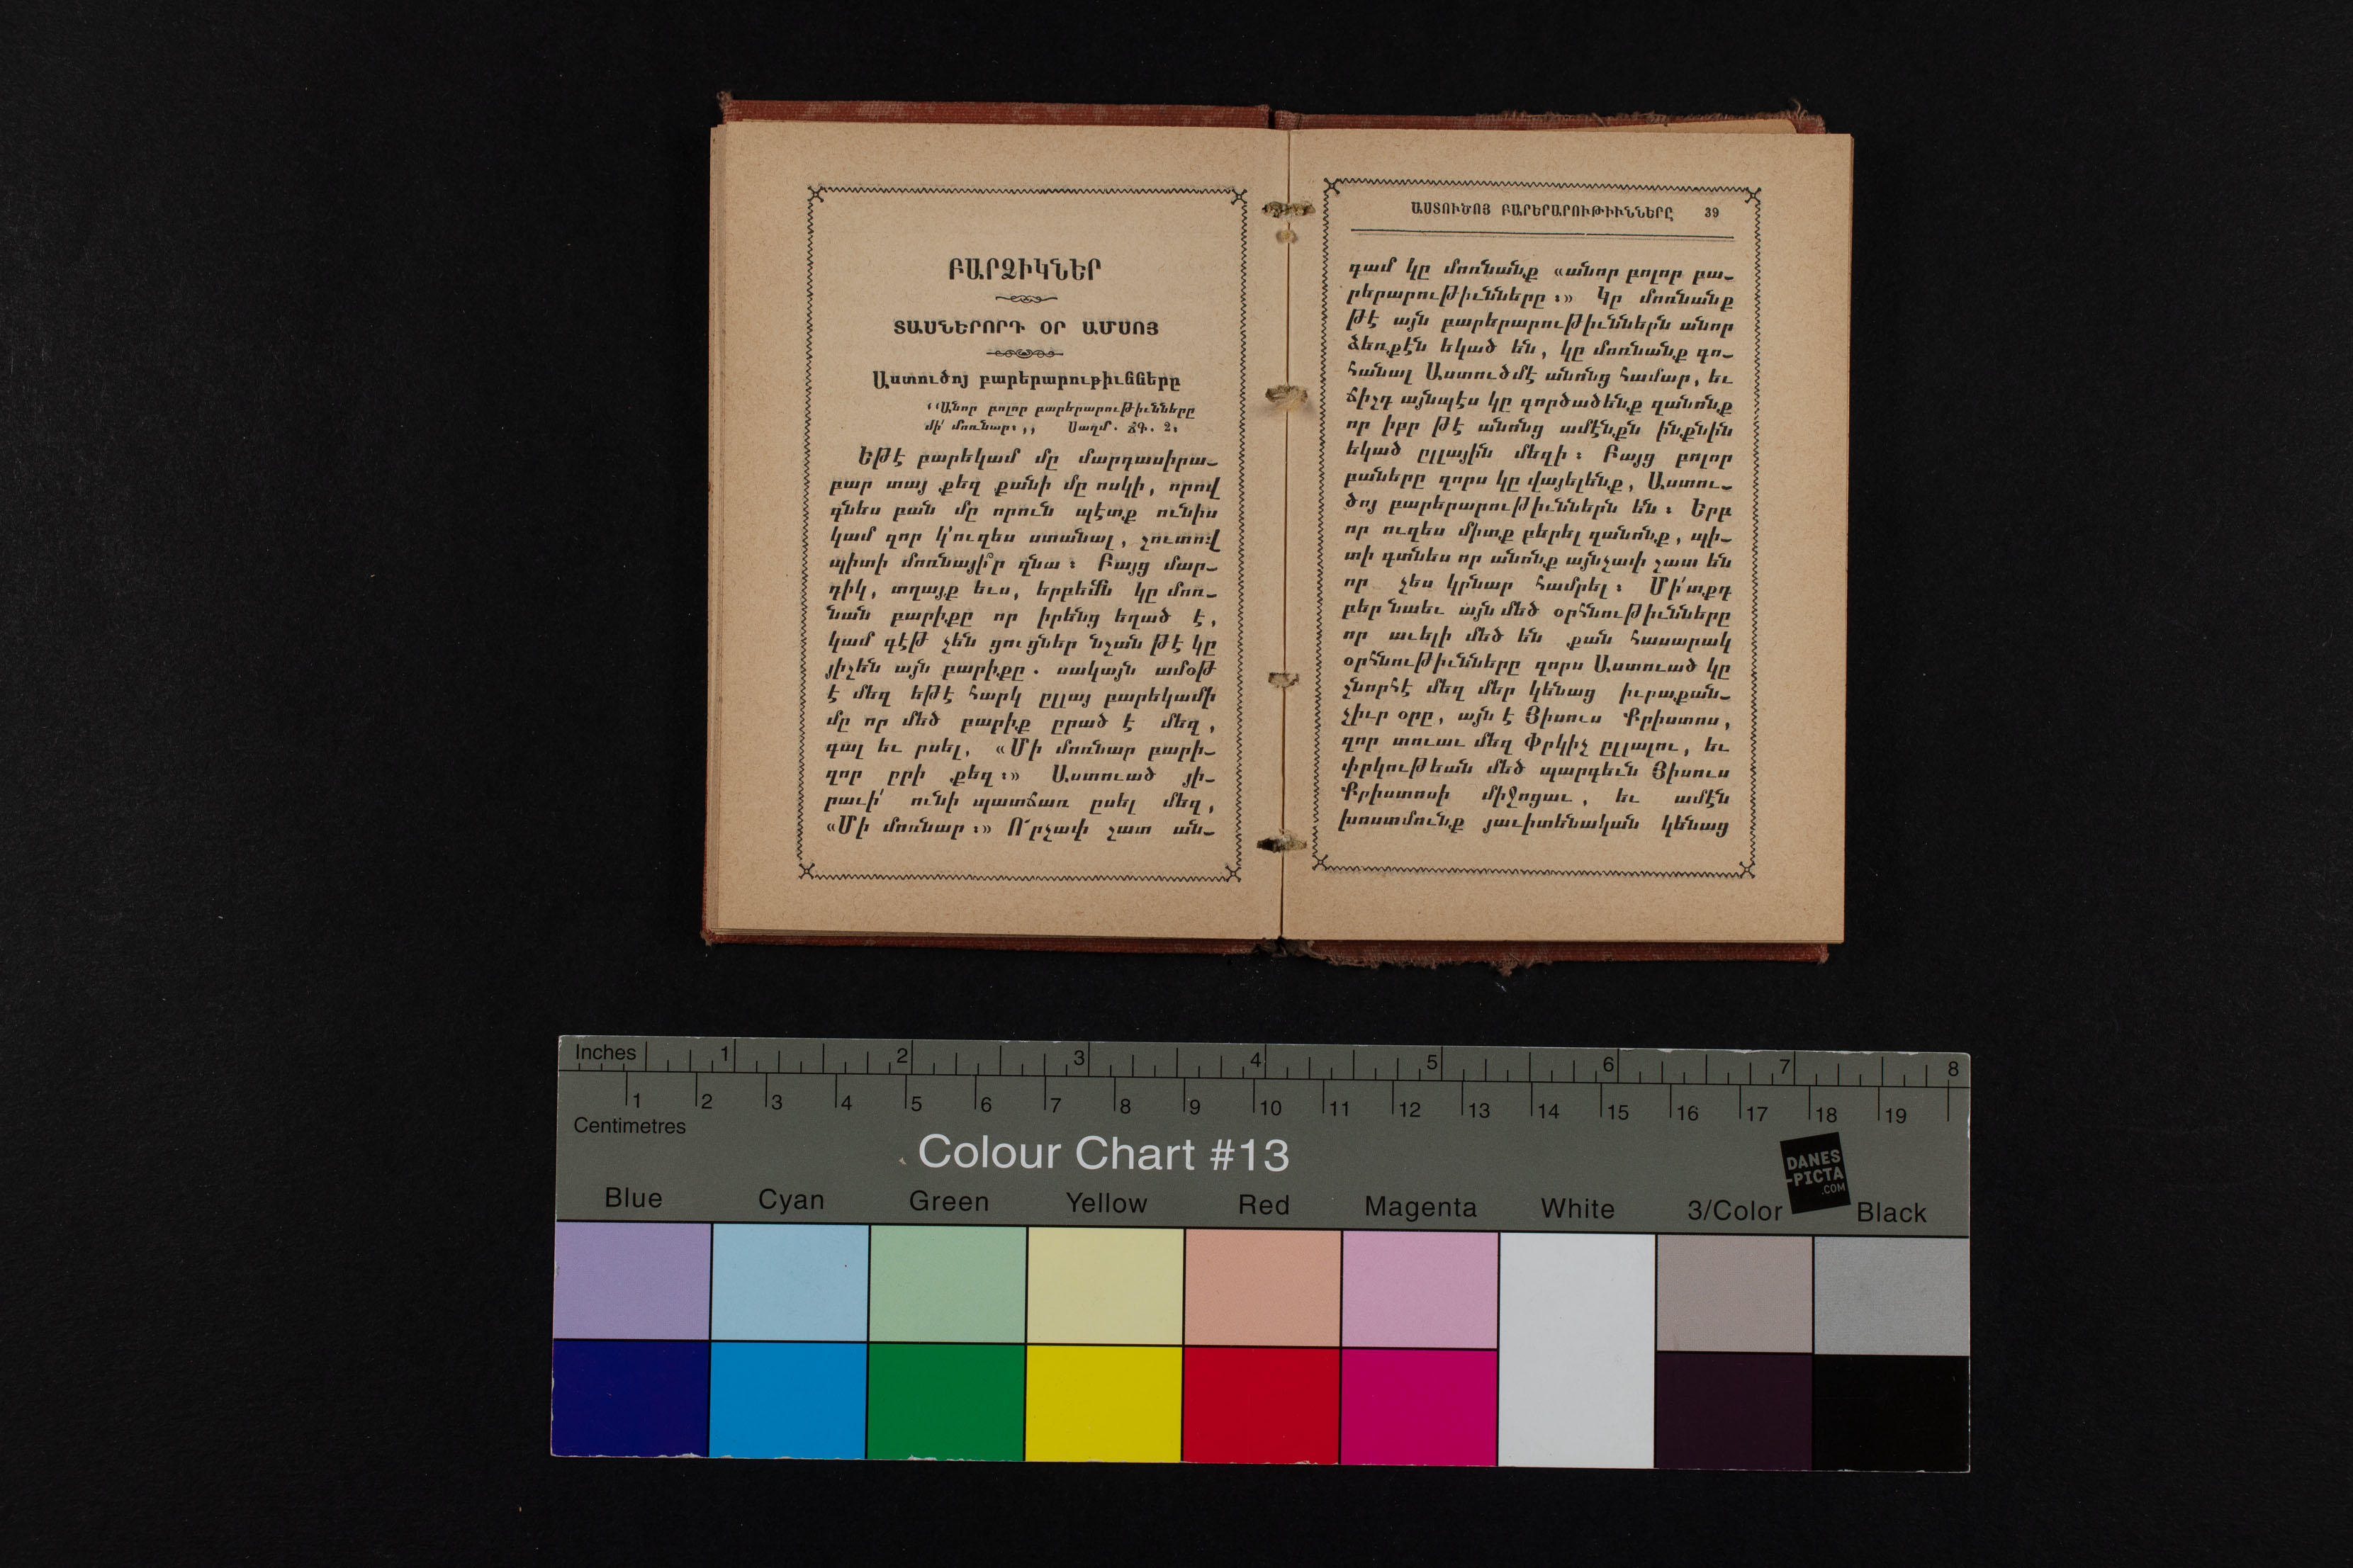 ԲԱՐՁԻԿՆԵՐ
ՏԱՍՆԵՐՈՐԴ ՕՐ ԱՄՍՈՅ
Աստուծոյ բարերարութիւնները
‘‘Անոր բոլոր բարերարութիւնները
մի՛ մոռնար։,, Սաղմ. ՃԳ. 2։
Եթէ բարեկամ մը մարդասիրա-
բար տայ քեզ քանի մը ոսկի, որով
գնես բան մը որուն պէտք ունիս
կամ զոր կ՚ուզես ստանալ, շուտով
պիտի մոռնայի՞ր զնա։ Բայց մար-
դիկ, տղայք եւս, երբեմն կը մոռ-
նան բարիքը որ իրենց եղած է,
կամ գէթ չեն ցուցներ նշան թէ կը
յիշեն այն բարիքը. սակայն ամօթ
է մեզ եթէ հարկ ըլլայ բարեկամի
մը որ մեծ բարիք ըրած է մեզ,
գալ եւ ըսել, «Մի մոռնար բարի-
քոր ըրի քեզ։» Աստուած յի-
րաւի՛ ունի պատճառ ըսել մեզ,
«Մի մոռնար։» Ո՜րչափ շատ ան-
ԱՍՏՈՒԾՈՅ ԲԱՐԵՐԱՐՈՒԹԻՒՆՆԵՐԸ 39
գամ կը մոռնանք «անոր բոլոր բա-
րերարութիւնները։» Կը մոռնանք
թէ այն բարերարութիւններն անոր
ձեռքէն եկած են, կը մոռնանք գո-
հանալ Աստուծմէ անոնց համար, եւ
ճիշդ այնպէս կը գործածենք զանոնք
որ իբր թէ անոնց ամէնքն ինքնին
եկած ըլլային մեզի։ Բայց բոլոր
բաները զորս կը վայելենք, Աստու-
ծոյ բարերարութիւններն են։ Երբ
որ ուզես միտք բերել զանոնք, պի-
տի գտնես որ անոնք այնչափ շատ են
որ չես կրնար համրել։ Մի՛տքդ
բեր նաեւ այն մեծ օրհնութիւնները
որ աւելի մեծ են քան հասարակ
օրհնութիւնները զորս Աստուած կը
շնորհէ մեզ մեր կենաց իւրաքան-
չիւր օրը, այն է Յիսուս Քրիստոս,
զոր տուաւ մեզ Փրկիչ ըլլալու, եւ
փրկութեան մեծ պարգեւն Յիսուս
Քրիստոսի միջոցաւ, եւ ամէն
խոստմունք յաւիտենական կենաց
Inches 1 2 3 4 5 6 7 8
1 2 3 4 5 6 7 8 9 10 11 12 13 14 15 16 17 18 19
Centimetres
Colour Chart #13
DANES
-PICTA
.COM
Blue Cyan Green Yellow Red Magenta White 3/Color Black